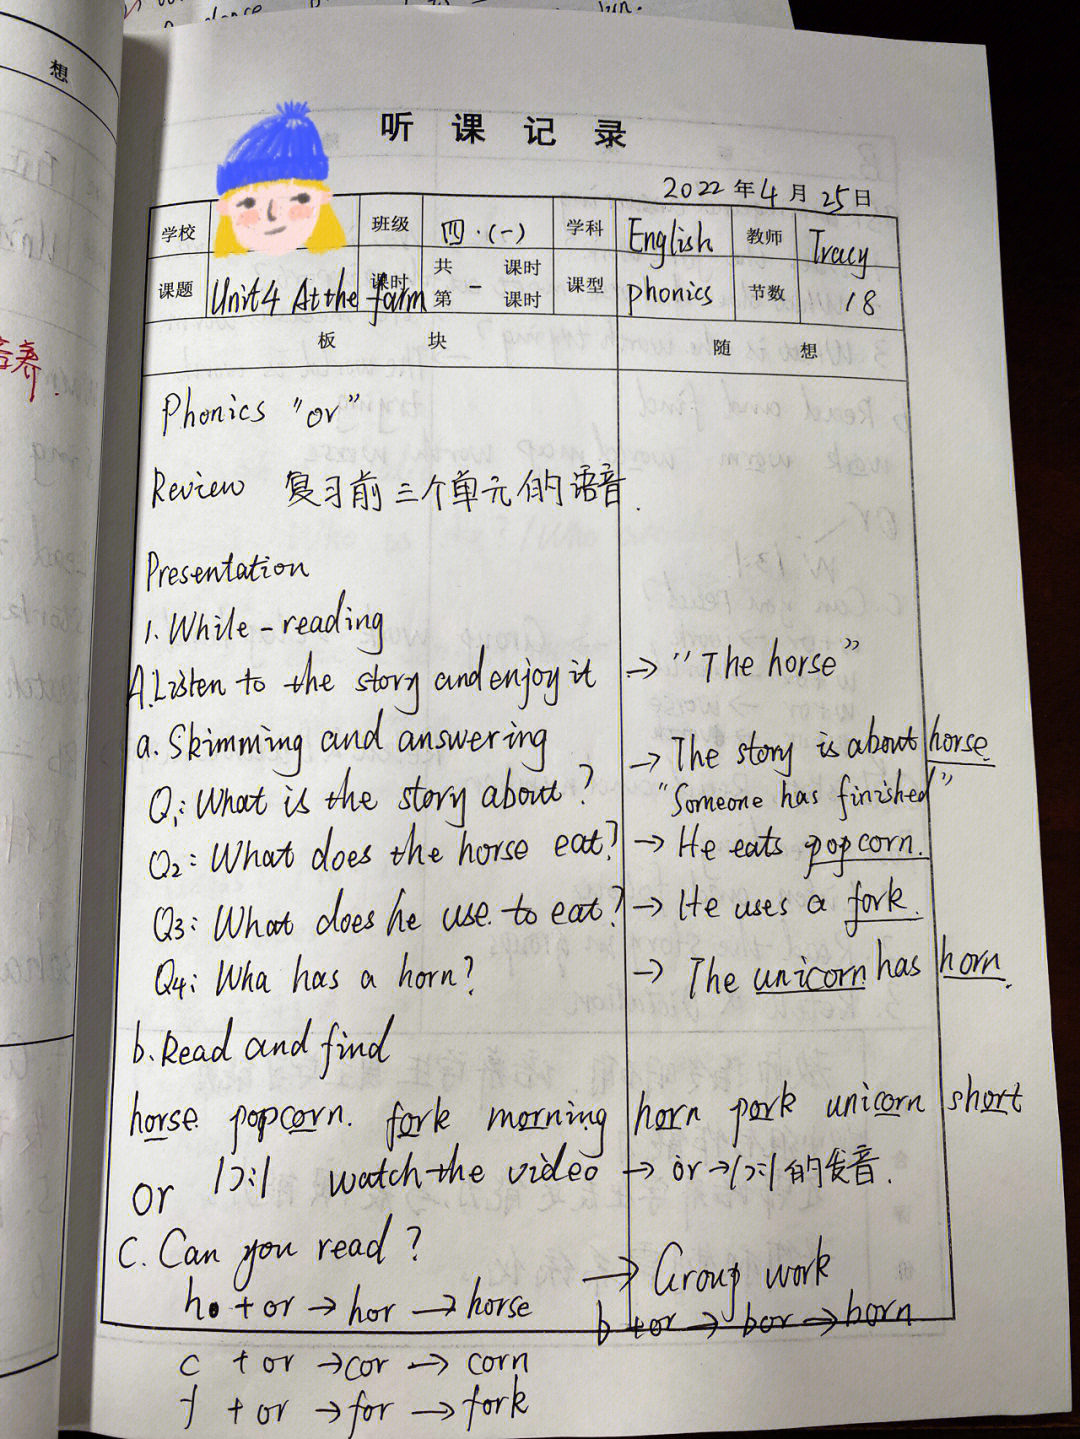 想
听课记录
2022年4月25日
学校 班级 四.(一) 学科 English 教师 Tracy
课题 Unit4 At the farm 课时 共 一 课时 第 课时 课型 phonics 节数 18
板块 随想
Phonics "or"
Review 复习前三个单元的语音.
Presentation
1. While-reading
A. Listen to the story and enjoy it → "The horse"
a. Skimming and answering → The story is about horse.
Q1: What is the story about? "Someone has finished"
Q2: What does the horse eat? → He eats popcorn.
Q3: What does he use to eat? → He uses a fork.
Q4: Wha has a horn? → The unicorn has horn.
b. Read and find
horse popcorn. fork morning horn pork unicorn short
or /ɔ:/ watch the video → or → /ɔ:/ 的发音.
C. Can you read? → Group work
h + or → hor → horse b + or → bor → born
c + or → cor → corn
f + or → for → fork